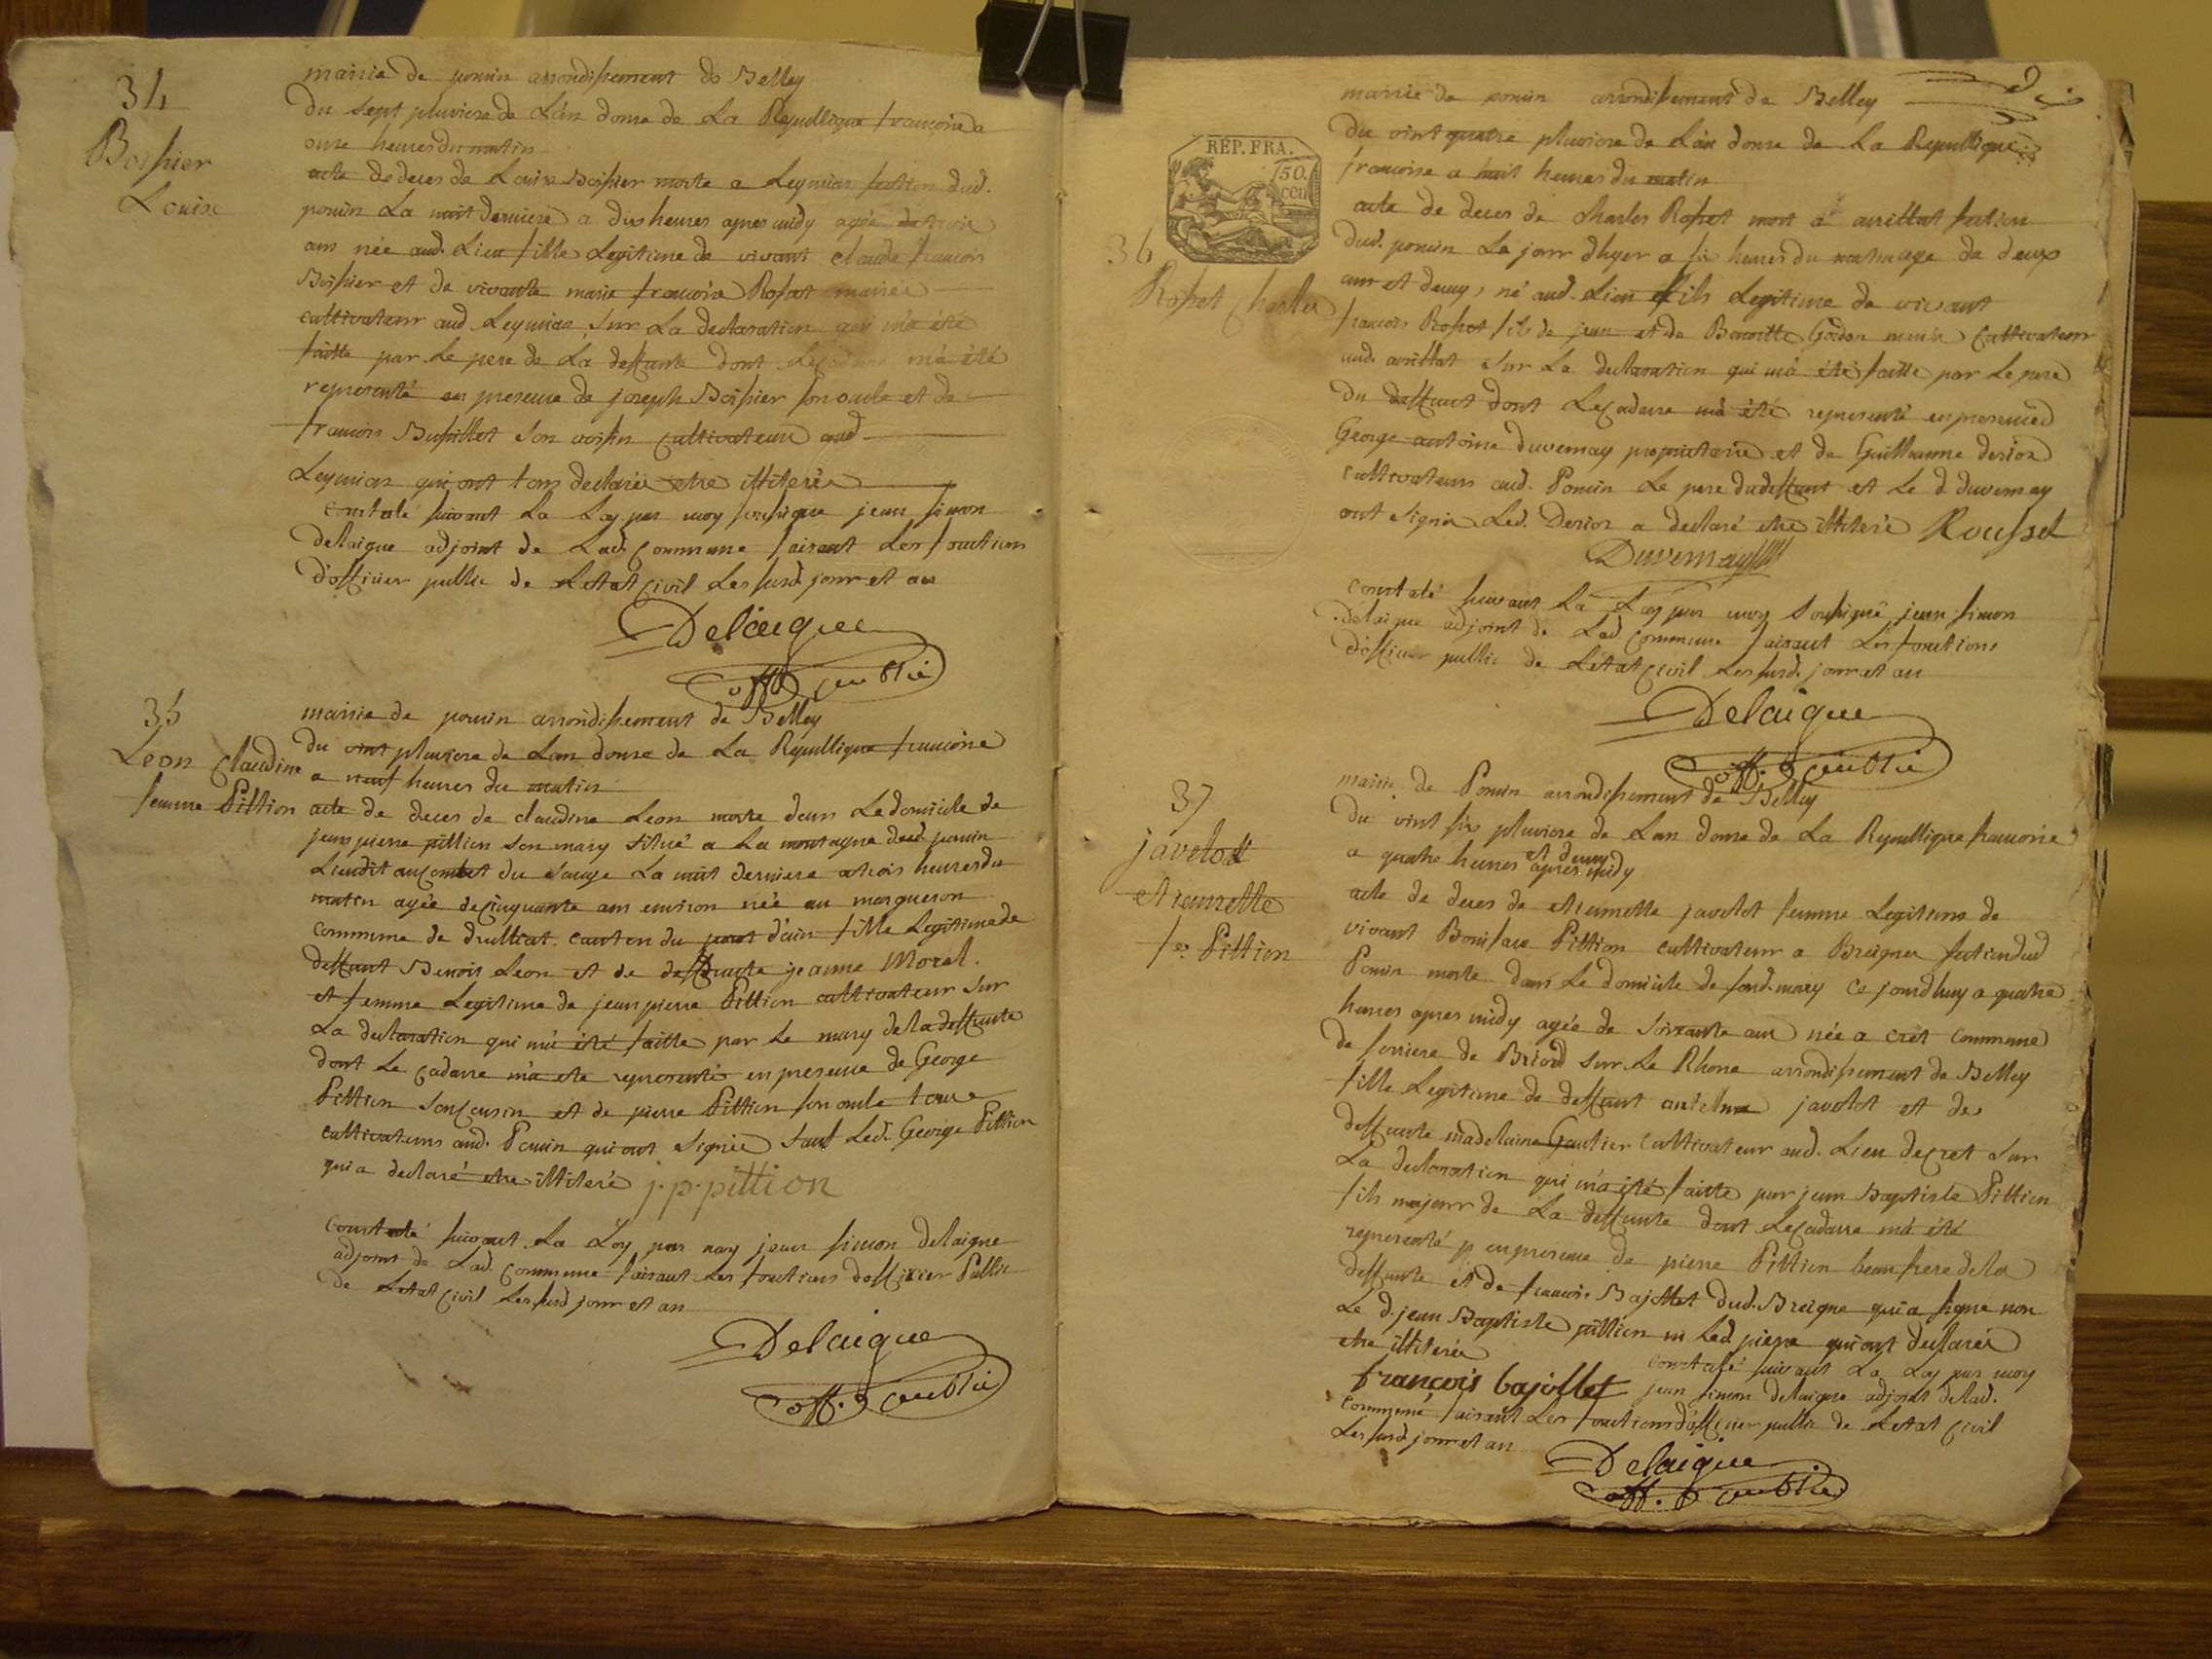 34
Boissier
Louise
mairie de poncin arrondissement de Belley
du sept pluviose de Lan douse de La Republique francoise a
onse heures du matin
acte de deces de Louise Boissier morte a Leymiac section dud.
poncin La nuit derniere a dix heures apres midy agée de trois
ans née aud. Lieu fille Legitime de vivant claude francois
Boissier et de vivante marie francoise Rosset mariés
cultivateur aud Leymiac, sur La declaration qui m'a été
faitte par Le pere de La deffunte dont Le cadavre m'a été
representé en presence de joseph Boissier son oncle et de
francois Busillet son voisin cultivateurs aud
Leymiac qui ont tous declarés etre illiterés
constaté suivant La Loy par moy sousigné jean simon
delaigue adjoint de Lad. Commune faisant Les fonctions
d'officier public de Letat Civil Les susd. jour et an
Delaigue
off. public
35
Leon Claudine
femme Pittion
mairie de poncin arrondissement de Belley
du vint pluviose de Lan douse de La Republique francoise
a neuf heures du matin
acte de deces de claudine Leon morte dans Le domicile de
jean pierre pittion son mary situé a La montagne dud. poncin
Lieu dit au Combet du sauge La nuit derniere a trois heures du
matin agée de Cinquante ans environ née au morgueron
commune de druillat. canton du pont d'ain fille Legitime de
deffunt Benoit Leon et de deffunte jeanne Morel.
et femme Legitime de jean pierre Pittion cultivateur sur
La declaration qui m'a été faitte par Le mary de la deffunte
dont Le cadavre m'a ete representé en presence de George
Pittion son Cousin et de pierre Pittion son oncle tous
cultivateurs aud. Poncin qui ont signés sauf Led. George Pittion
qui a declaré etre illiteré j. p. pittion
constaté suivant La Loy par moy jean simon delaigue
adjoint de Lad. Commune faisant Les fonctions d'officier Public
de Letat Civil Les susd jour et an
Delaigue
off. public
REP. FRA.
50.
cen
36
Rosset Charles
mairie de poncin arrondissement de Belley
du vint quatre pluviose de Lan douse de La Republique
francoise a huit heures du matin
acte de deces de charles Rosset mort a arrillat section
dud. poncin Le jour d'hyer a six heures du matin age de deux
ans et demy, né aud. Lieu fils Legitime de vivant
francois Rosset fils de jean et de Benoitte Godon mariés Cultivateurs
aud. arrillat sur La declaration qui m'a été faitte par Le pere
du deffunt dont Le cadavre m'a été representé en presence d
George antoine duvernay proprietaire et de Guillaume derios
cultivateurs aud. Poncin Le pere du deffunt et Le d. duvernay
ont signés Led. Derios a declaré etre illiteré Rousset
Duvernay
constaté suivant La Loy par moy sousigné jean simon
delaigue adjoint de Lad Commune faisant Les fonctions
d'officier public de Letat Civil Les susd. jour et an
Delaigue
off. public
37
javelot
etiennette
fe. Pittion
mairie de Poncin arrondissement de Belley
du vint six pluviose de Lan douse de La Republique francoise
a quatre heures et demy apres midy
acte de deces de etiennette javelot femme Legitime de
vivant Boniface Pittion cultivateur a Breignes section dud
Poncin morte dans Le domicile de sond. mary ce jourd'huy a quatre
heures apres midy agée de soixante ans née a cret Commune
de serriere de Briord sur Le Rhone arrondissement de Belley
fille Legitime de deffunt antelme javelot et de
deffunte madelaine Gautier Cultivateur aud. Lieu de cret sur
La declaration qui m'a été faitte par jean Baptiste Pittion
fils majeur de La deffunte dont Le cadavre m'a été
representé en presence de pierre Pittion beau frere de la
deffunte et de francois Bajollet dud. Breigne qui a signé non
Le d. jean Baptiste pittion ni Led. pierre qui ont declarés
etre illiterés constaté suivant La Loy par moy
françois bajollet jean simon delaigue adjoint de lad.
Commune faisant Les fonctions d'officier public de Letat Civil
Les susd jour et an
Delaigue
off. public